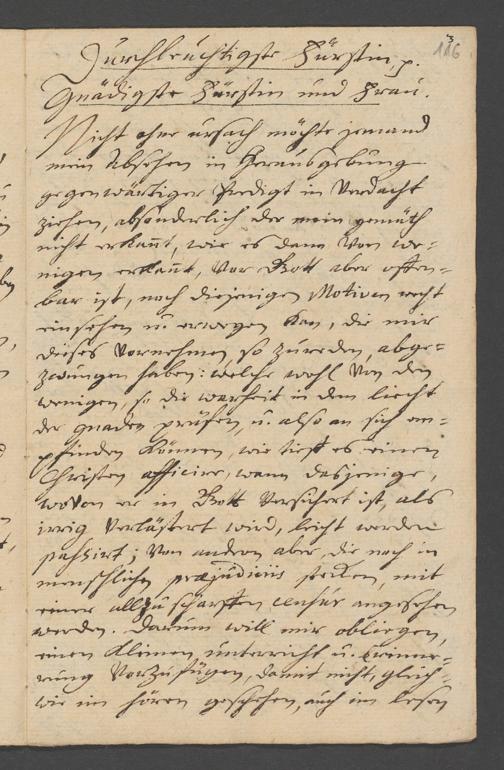 116
Durchleuchtigste Fürstin p.
Gnädigste Fürstin und Frau.
Nicht ohne ursach möchte jemand
mein Absehen in Herausgebung
gegenwärtiger Predigt in Verdacht
ziehen, absonderlich der mein gemüth
nicht erkant, wie es dann von we-
nigen erkant, vor Gott aber offen-
bar ist, noch diejenigen Motiven recht
einsehen u. erwegen kan, die mir
dieses Vornehmen, so zureden, abge-
zwungen haben: welche wohl von den
wenigen, so die warheit in dem liecht
der gnaden prüfen, u. also an sich em-
pfinden können, wie tieff es einen
Christen afficire, wann dasjenige,
wovon er in Gott versichert ist, als
irrig verlästert wird, leicht werden
passirt; von andern aber, die noch in
menschlichen praejudiciis stecken, mit
einer allzu scharffen censur angesehen
werden. Darum will mir obliegen,
einen kleinen unterricht u. erinne-
rung vorzufügen, damit nicht, gleich-
wie im hören geschehen, auch im lesen